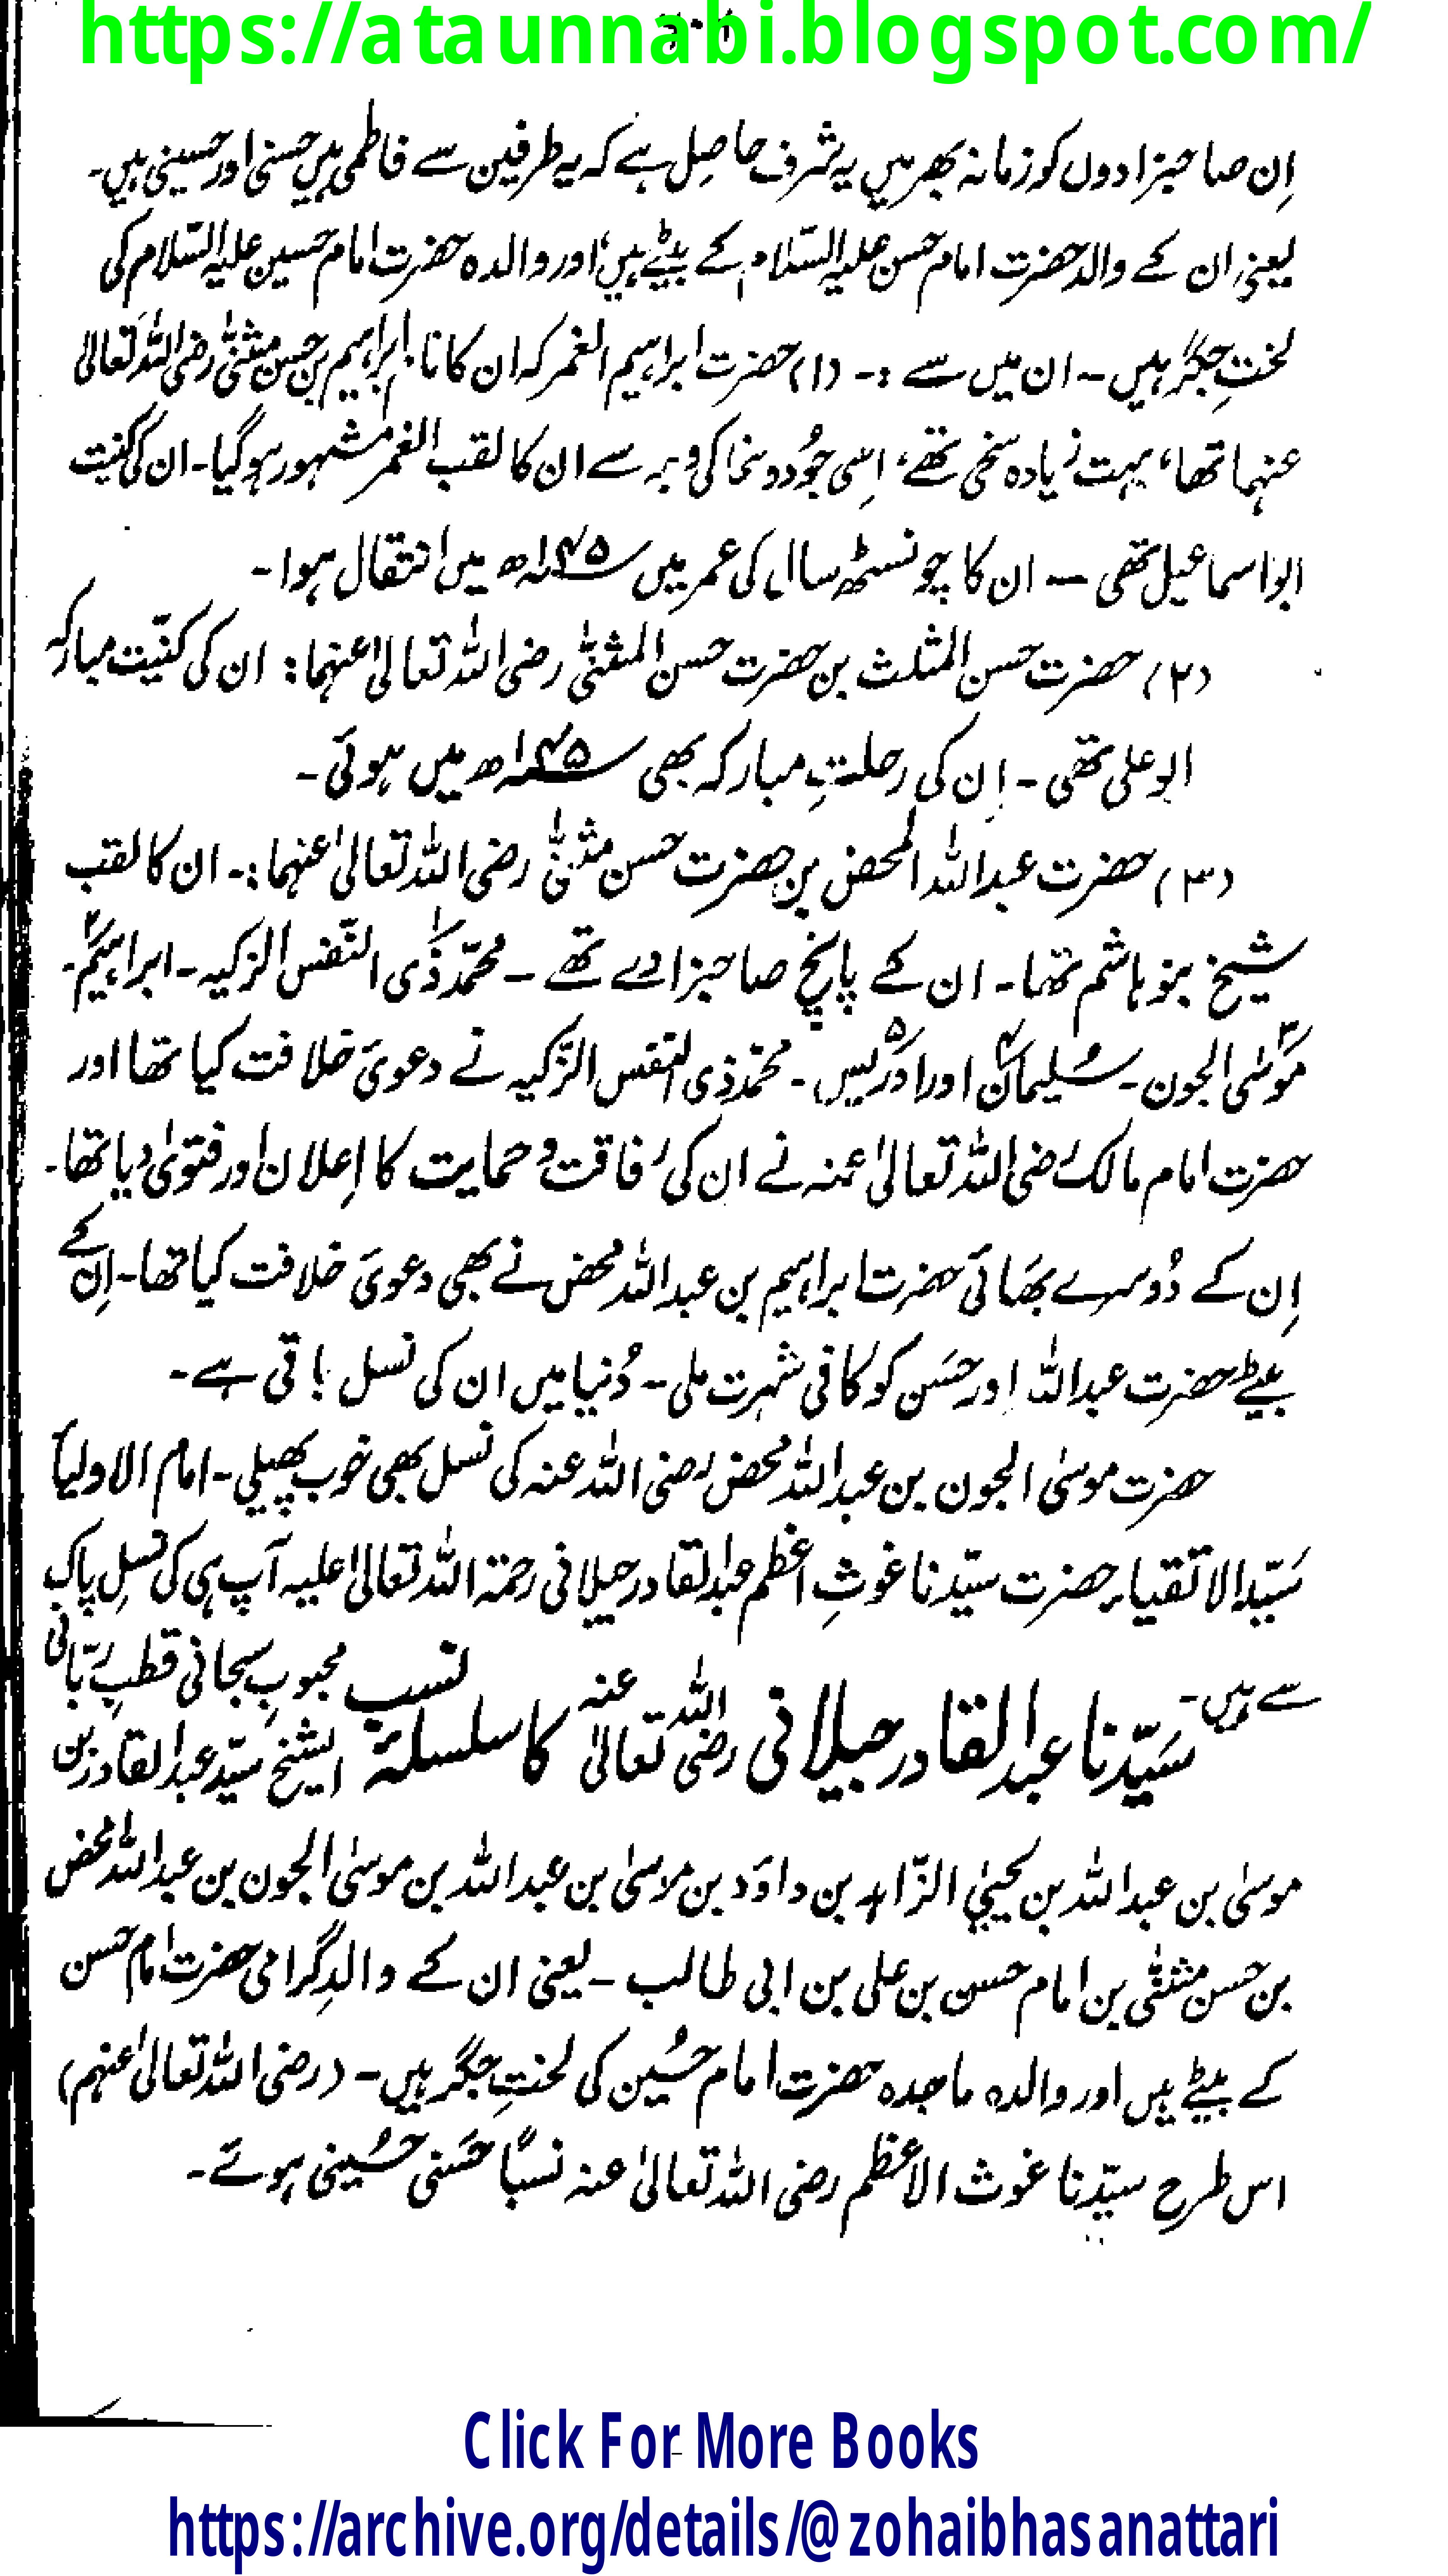 https://ataunnabi.blogspot.com/
اِن صاحبزادوں کو زمانہ بھر میں یہ شرف حاصِل ہے کہ یہ طرفین سے فاطمی ہیں حسنی اور حسینی ہیں۔
یعنی ان کے والد حضرت امام حسن علیہ السّلام کے بیٹے ہیں، اور والدہ حضرت امام حسین علیہ السّلام کی
لختِ جگر ہیں۔ ان میں سے :۔ (۱) حضرت ابراہیم الغمر کہ ان کا نام ابراہیم بن حسن مثنّٰی رضی اللہ تعالیٰ
عنہما تھا، بہت زیادہ سخی تھے، اِسی جُود و سخا کی وجہ سے ان کا لقب الغمر مشہور ہو گیا۔ ان کی کنیت
ابواسماعیل تھی — ان کا چونسٹھ سال کی عمر میں ۱۴۵ھ میں انتقال ہوا۔
(۲) حضرت حسن المثلث بن حضرت حسن المثنّٰی رضی اللہ تعالیٰ عنہما: ان کی کنیّت مبارکہ
ابو علی تھی۔ اِن کی رحلتِ مبارکہ بھی ۱۴۵ھ میں ہوئی۔
(۳) حضرت عبداللہ المحض بن حضرت حسن مثنّٰی رضی اللہ تعالیٰ عنہما :۔ ان کا لقب
شیخ بنو ہاشم تھا۔ ان کے پانچ صاحبزادے تھے — محمّد ذی النّفس الزکیہ۔ ابراہیم۲۔
موسٰی الجون۳۔ سُلیمان۴ اور ادریس۵۔ محمّد ذی النفس الزّکیہ نے دعویٰ خلافت کیا تھا اور
حضرت امام مالک رضی اللہ تعالیٰ عنہ نے ان کی رفاقت و حمایت کا اِعلان اور فتویٰ دیا تھا۔
اِن کے دُوسرے بھائی حضرت ابراہیم بن عبداللہ محض نے بھی دعویٰ خلافت کیا تھا۔ اِن کے
بیٹے حضرت عبداللہ اور حسَن کو کافی شہرت ملی۔ دُنیا میں ان کی نسل باقی ہے۔
حضرت موسیٰ الجون بن عبداللہ محض رضی اللہ عنہ کی نسل بھی خوب پھیلی۔ امام الاولیاء
سَیّد الاتقیاء حضرت سیّدنا غوثِ اعظم عبدالقادر جیلانی رحمۃ اللہ تعالیٰ علیہ آپ ہی کی نسلِ پاک
سے ہیں۔
سَیّدنا عبدالقادر جیلانی رضی اللہ تعالیٰ عنہ کا سلسلۂ نسب محبوبِ سبحانی قطبِ ربّانی
الشیخ سیّد عبدالقادر بن
موسیٰ بن عبداللہ بن یحییٰ الزّاہد بن داوٗد بن موسیٰ بن عبداللہ بن موسیٰ الجون بن عبداللہ المحض
بن حسن مثنّٰی بن امام حسن بن علی بن ابی طالب — یعنی ان کے والدِ گرامی حضرت امام حسن
کے بیٹے ہیں اور والدہ ماجدہ حضرت امام حسُین کی لختِ جگر ہیں۔ (رضی اللہ تعالیٰ عنہم)
اس طرح سیّدنا غوث الاعظم رضی اللہ تعالیٰ عنہ نسبًا حَسَنی حسُینی ہوئے۔
Click For More Books
https://archive.org/details/@zohaibhasanattari